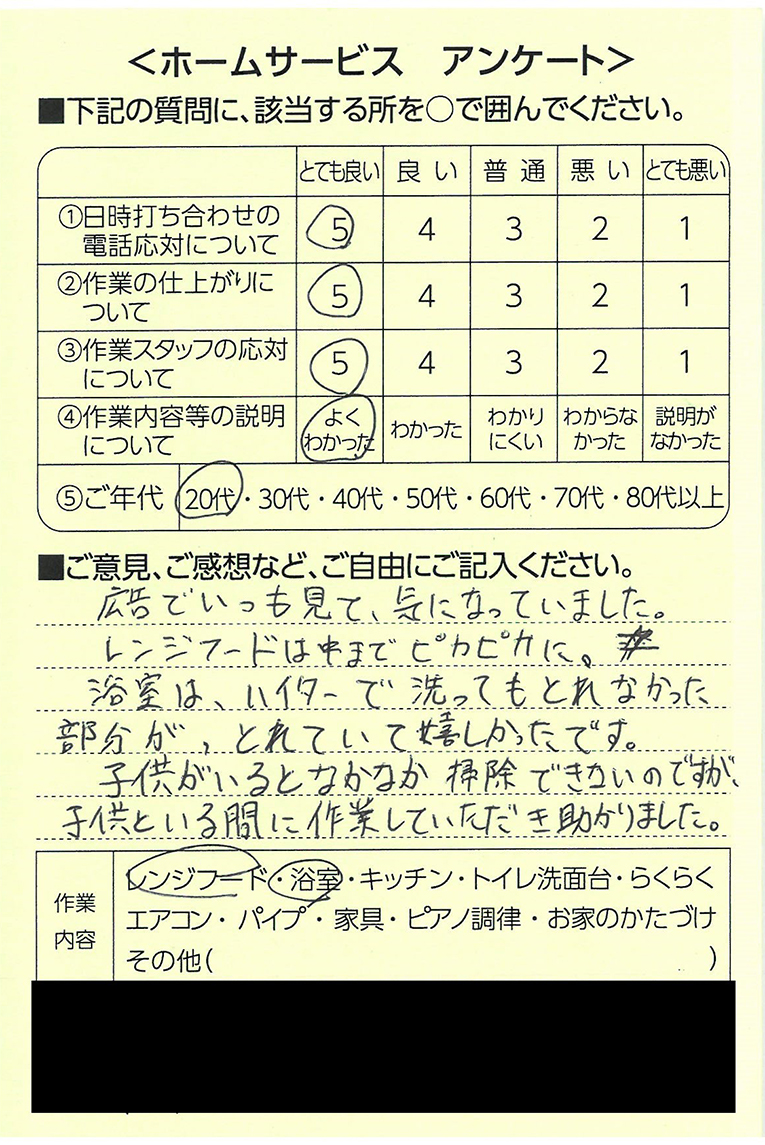 <ホームサービス アンケート>
■下記の質問に、該当する所を○で囲んでください。
とても良い 良い 普通 悪い とても悪い
①日時打ち合わせの 5 4 3 2 1
電話応対について
②作業の仕上がりに 5 4 3 2 1
ついて
③作業スタッフの応対 5 4 3 2 1
について
④作業内容等の説明 よく わかった わかり わからな 説明が
について わかった にくい かった なかった
⑤ご年代 20代・30代・40代・50代・60代・70代・80代以上
■ご意見、ご感想など、ご自由にご記入ください。
広告でいっも見て、気になっていました。
レンジフードは中までピカピカに。
浴室は、ハイターで洗ってもとれなかった
部分が、とれていて嬉しかったです。
子供がいるとなかなか掃除できないのですが、
子供といる間に作業していただき助かりました。
作業
内容
レンジフード・浴室・キッチン・トイレ洗面台・らくらく
エアコン・パイプ・家具・ピアノ調律・お家のかたづけ
その他( )